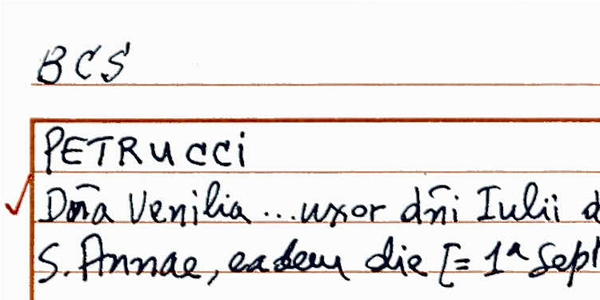 BCS
PETRUCCI
Dña Venilia ... uxor dñi Iulii d
S. Annae, eadem die [= 1ª Sept